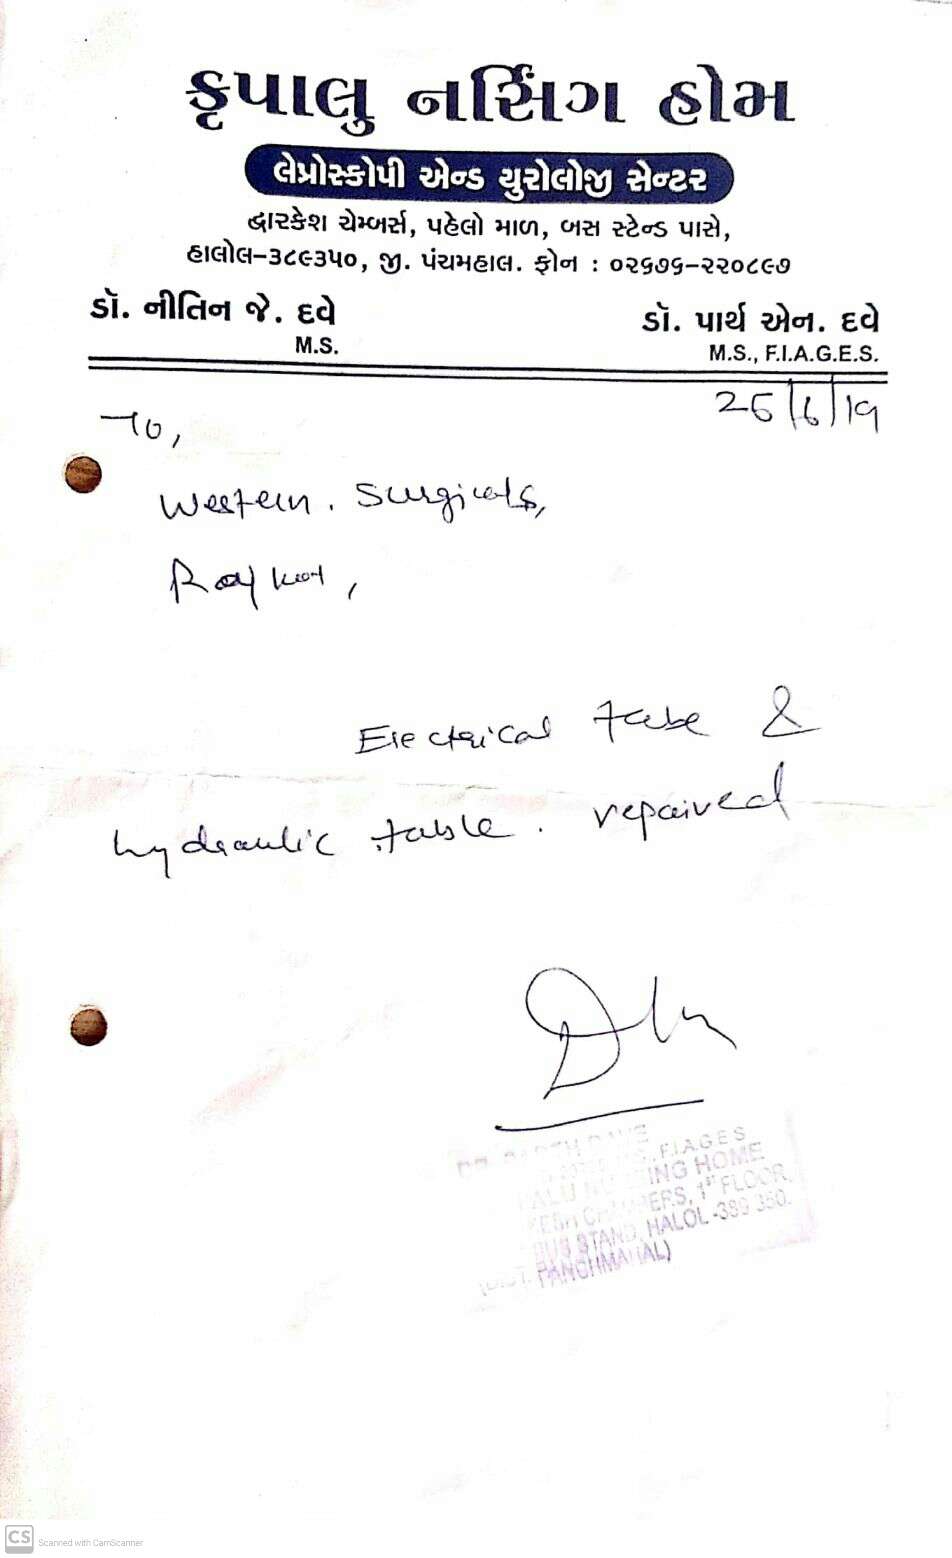 કૃપાલુ નર્સિંગ હોમ
લેપ્રોસ્કોપી એન્ડ યુરોલોજી સેન્ટર
દ્વારકેશ ચેમ્બર્સ, પહેલો માળ, બસ સ્ટેન્ડ પાસે,
હાલોલ-૩૮૯૩૫૦, જી. પંચમહાલ. ફોન : ૦૨૬૭૬-૨૨૦૮૯૭
ડૉ. નીતિન જે. દવે
M.S.
ડૉ. પાર્થ એન. દવે
M.S., F.I.A.G.E.S.
26/6/19
To,
Western. Surgicals,
Rajkot,
Electrical table &
hydraulic table. repaired
F.I.A.G.E.S
HOME
1st FLOOR,
BUS STAND, HALOL-389 350.
PANCHMAHAL)
CS Scanned with CamScanner